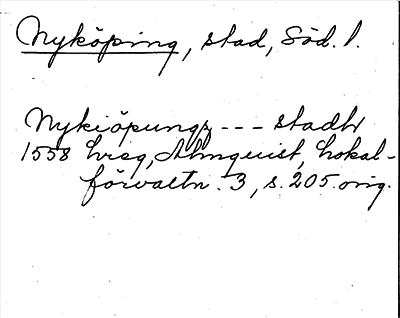 Nyköping, stad, Söd. l.
Nykiöpungz --- stadhr
1558 hisg, Almquist, Lokal-
förvaltn. 3, s. 205. orig.